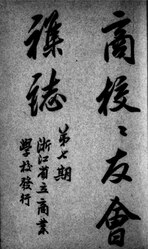 商校校友會
雜誌
第七期
浙江省立商業
學校發行